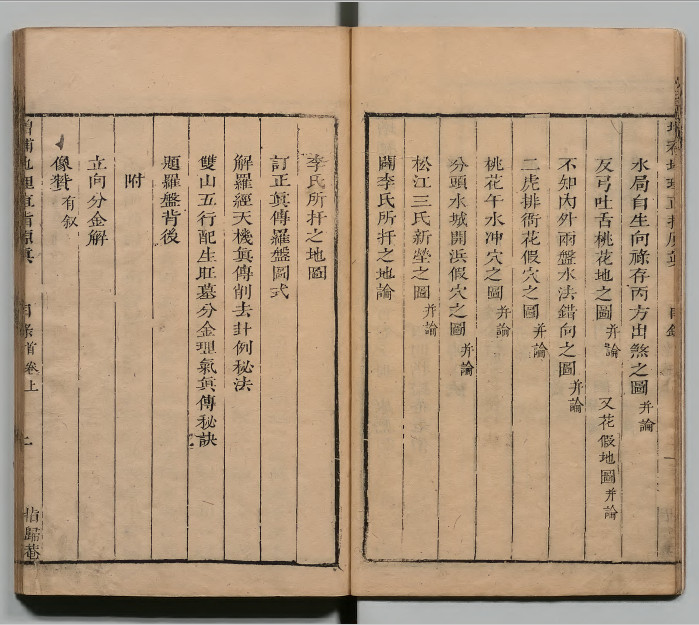 水局自生向祿存丙方出煞之圖 并論
反弓吐舌桃花地之圖 并論 又花假地圖 并論
不知內外兩盤水法錯向之圖 并論
二虎排衙花假穴之圖 并論
桃花午水冲穴之圖 并論
分頭水城開浜假穴之圖 并論
松江三氏新塋之圖 并論
闢李氏所扦之地論
李氏所扦之地圖
訂正眞傳羅盤圖式
解羅經天機眞傳削去卦例秘法
雙山五行配生旺墓分金理氣眞傳秘訣
題羅盤背後
附
立向分金解
像贊 有叙
地理直指原眞 目録 首卷上
指歸菴